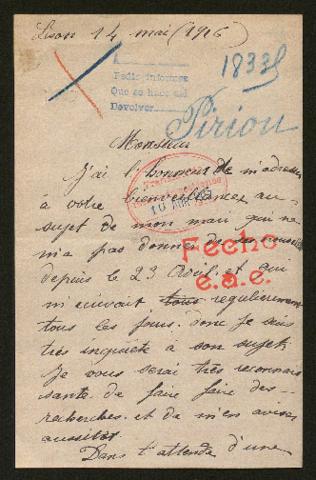 Lison 14 mai (1916
A
Pedir informes
Que se hace así
Devolver
18335
Pirion
Monsieur
J'ai l'honneur de m'adresser
à votre bienveillance au
sujet de mon mari qui ne
m'a pas donner de ses nouvelles
depuis le 23 avril et qui
m'écrivait tous regulièrement
tous les jours. donc je suis
très inquiète à son sujet.
Je vous serai très reconnais
sante de faire faire des
recherches et de m'en aviser
aussitot
Dans l'attende d'une
Fecho
e.a.e.